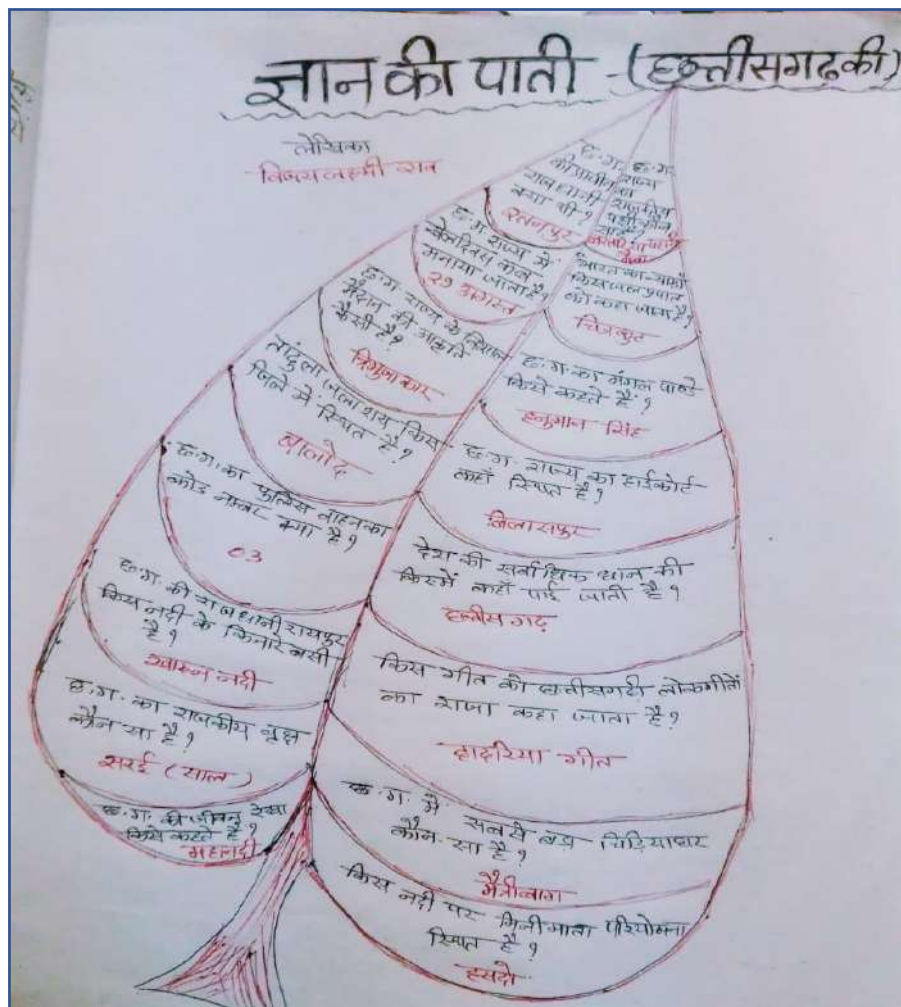 ज्ञान की पाती - (छत्तीसगढ़ की)
लेखिका
विजयलक्ष्मी राव
छ.ग. राज्य
की प्राचीन
राजधानी
क्या थी?
रतनपुर
छ.ग. राज्य में
खेल दिवस कब
मनाया जाता है?
29 अगस्त
छ.ग. राज्य के
मैदान की आकृति
कैसी है?
त्रिभुजाकार
तांदुला जलाशय किस
जिले में स्थित है?
बालोद
छ.ग. का पुलिस वाहन का
कोड नम्बर क्या है?
03
छ.ग. की राजधानी रायपुर
किस नदी के किनारे बसी
है?
खारुन नदी
छ.ग. का राजकीय वृक्ष
कौन सा है?
सरई (साल)
छ.ग. की जीवन रेखा
किसे कहते है?
महानदी
छ.ग.
का
राजकीय
पक्षी कौन
सा है?
मैना
भारत का
किस जल प्रपात
को कहा जाता है?
चित्रकुट
छ.ग. का मंगल पाण्डे
किसे कहते है?
हनुमान सिंह
छ.ग. राज्य का हाईकोर्ट
कहाँ स्थित है?
बिलासपुर
देश की सर्वाधिक धान की
किस्में कहाँ पाई जाती है?
छत्तीसगढ़
किस गीत को छत्तीसगढ़ी लोकगीतों
का राजा कहा जाता है?
ददरिया गीत
छ.ग. में सबसे बड़ा चिड़ियाघर
कौन सा है?
मैत्रीबाग
किस नदी पर मिनीमाता परियोजना
स्थित है?
हसदो